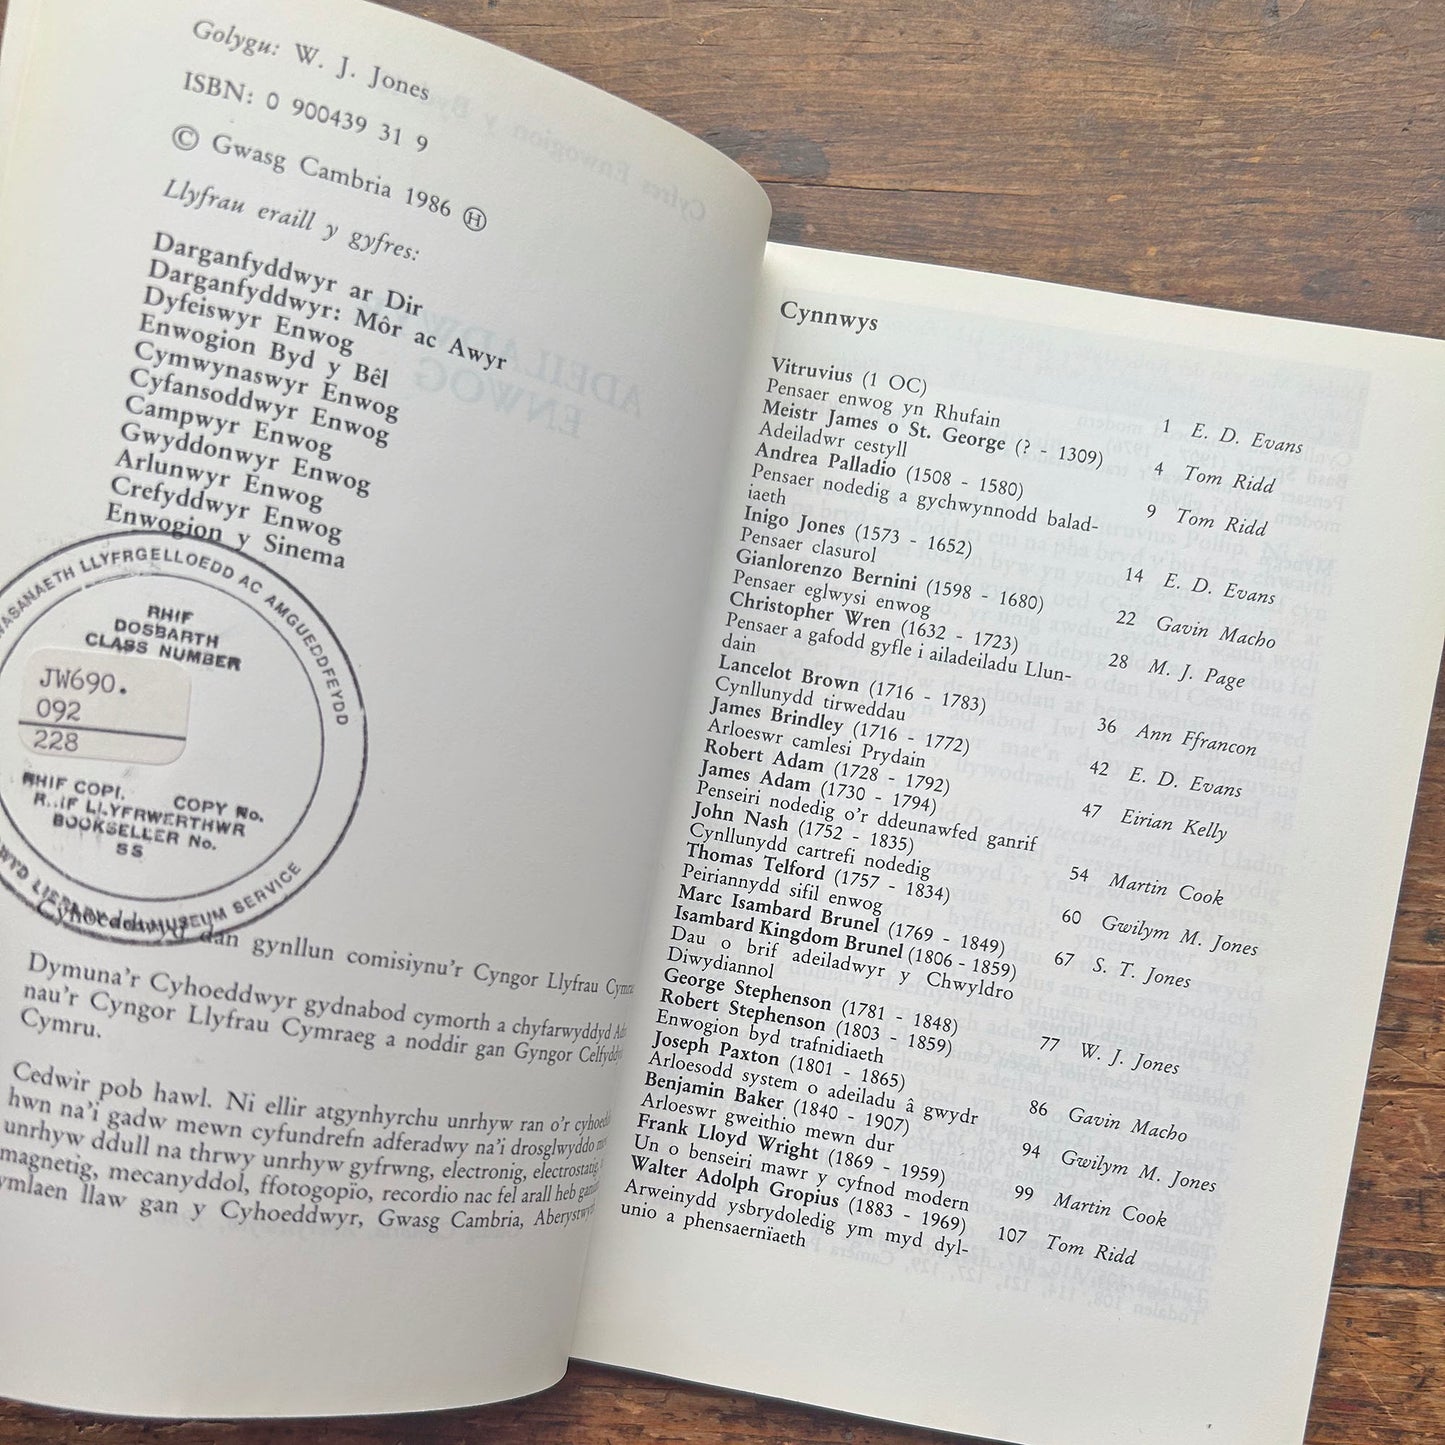 Golygu: W. J. Jones
ISBN: 0 900439 31 9
© Gwasg Cambria 1986 Ⓗ
Llyfrau eraill y gyfres:
Darganfyddwyr ar Dir
Darganfyddwyr: Môr ac Awyr
Dyfeiswyr Enwog
Enwogion Byd y Bêl
Cymwynaswyr Enwog
Cyfansoddwyr Enwog
Campwyr Enwog
Gwyddonwyr Enwog
Arlunwyr Enwog
Crefyddwyr Enwog
Enwogion y Sinema
LLYFRGELLOEDD AC AMGUEDDFEYDD
RHIF
DOSBARTH
CLASS NUMBER
JW690.
092
228
RHIF COPI. COPY No.
LLYFRWERTHWR
BOOKSELLER No.
SS
MUSEUM SERVICE
dan gynllun comisiynu'r Cyngor Llyfrau
Dymuna'r Cyhoeddwyr gydnabod cymorth a chyfarwyddyd
nau'r Cyngor Llyfrau Cymraeg a noddir gan Gyngor
Cymru.
Cedwir pob hawl. Ni ellir atgynhyrchu unrhyw ran o'r
hwn na'i gadw mewn cyfundrefn adferadwy na'i drosglwyddo
unrhyw ddull na thrwy unrhyw gyfrwng, electronig, electrostatig,
magnetig, mecanyddol, ffotogopïo, recordio nac fel arall heb
ymlaen llaw gan y Cyhoeddwyr, Gwasg Cambria,
Cynnwys
Vitruvius (1 OC)
Pensaer enwog yn Rhufain 1 E. D. Evans
Meistr James o St. George (? - 1309)
Adeiladwr cestyll 4 Tom Ridd
Andrea Palladio (1508 - 1580)
Pensaer nodedig a gychwynnodd balad-
iaeth 9 Tom Ridd
Inigo Jones (1573 - 1652)
Pensaer clasurol 14 E. D. Evans
Gianlorenzo Bernini (1598 - 1680)
Pensaer eglwysi enwog 22 Gavin Macho
Christopher Wren (1632 - 1723)
Pensaer a gafodd gyfle i ailadeiladu Llun-
dain 28 M. J. Page
Lancelot Brown (1716 - 1783)
Cynllunydd tirweddau 36 Ann Ffrancon
James Brindley (1716 - 1772)
Arloeswr camlesi Prydain 42 E. D. Evans
Robert Adam (1728 - 1792)
James Adam (1730 - 1794)
Penseiri nodedig o'r ddeunawfed ganrif 47 Eirian Kelly
John Nash (1752 - 1835)
Cynllunydd cartrefi nodedig 54 Martin Cook
Thomas Telford (1757 - 1834)
Peiriannydd sifil enwog 60 Gwilym M. Jones
Marc Isambard Brunel (1769 - 1849)
Isambard Kingdom Brunel (1806 - 1859)
Dau o brif adeiladwyr y Chwyldro
Diwydiannol 67 S. T. Jones
George Stephenson (1781 - 1848)
Robert Stephenson (1803 - 1859)
Enwogion byd trafnidiaeth 77 W. J. Jones
Joseph Paxton (1801 - 1865)
Arloesodd system o adeiladu â gwydr 86 Gavin Macho
Benjamin Baker (1840 - 1907)
Arloeswr gweithio mewn dur 94 Gwilym M. Jones
Frank Lloyd Wright (1869 - 1959)
Un o benseiri mawr y cyfnod modern 99 Martin Cook
Walter Adolph Gropius (1883 - 1969)
Arweinydd ysbrydoledig ym myd dyl-
unio a phensaernïaeth 107 Tom Ridd